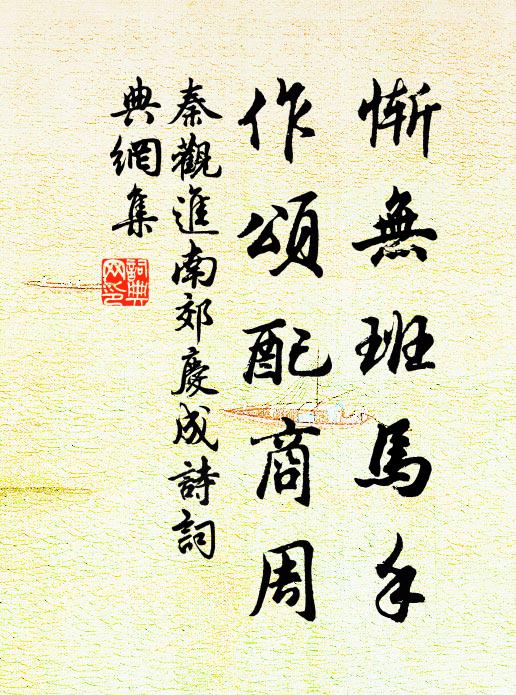 慚無班馬手
作頌配商周
秦觀進南郊慶成詩詞
典網集
詞典
网印